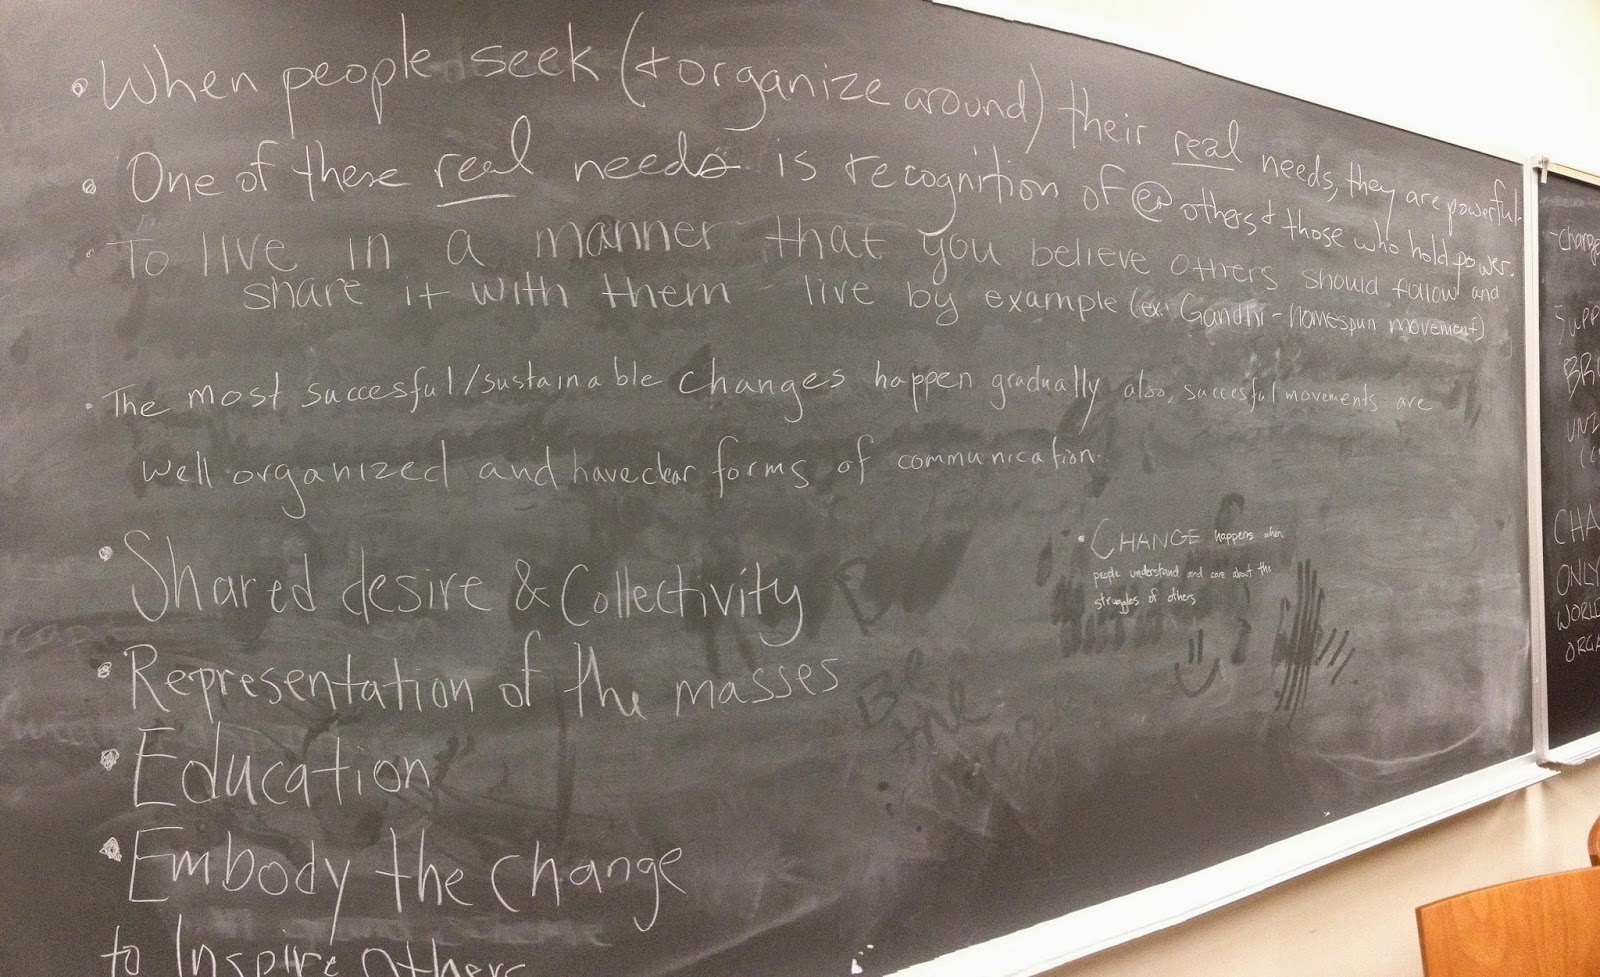 • When people seek (+ organize around) their real needs, they are powerful.
• One of these real needs is recognition of @ others & those who hold power.
• To live in a manner that you believe others should follow and
share it with them - live by example (ex: Gandhi - Homespun movement)
• The most succesful/sustainable changes happen gradually also, succesful movements are
well organized and have clear forms of communication.
• Shared desire & Collectivity
• Representation of the masses
• Education
• Embody the change
to Inspire Others
• CHANGE happens when
people understand and care about the
struggles of others
Be
the
- change
SUPP
BR
UNI
CHA
ONLY
WORLD
ORGA